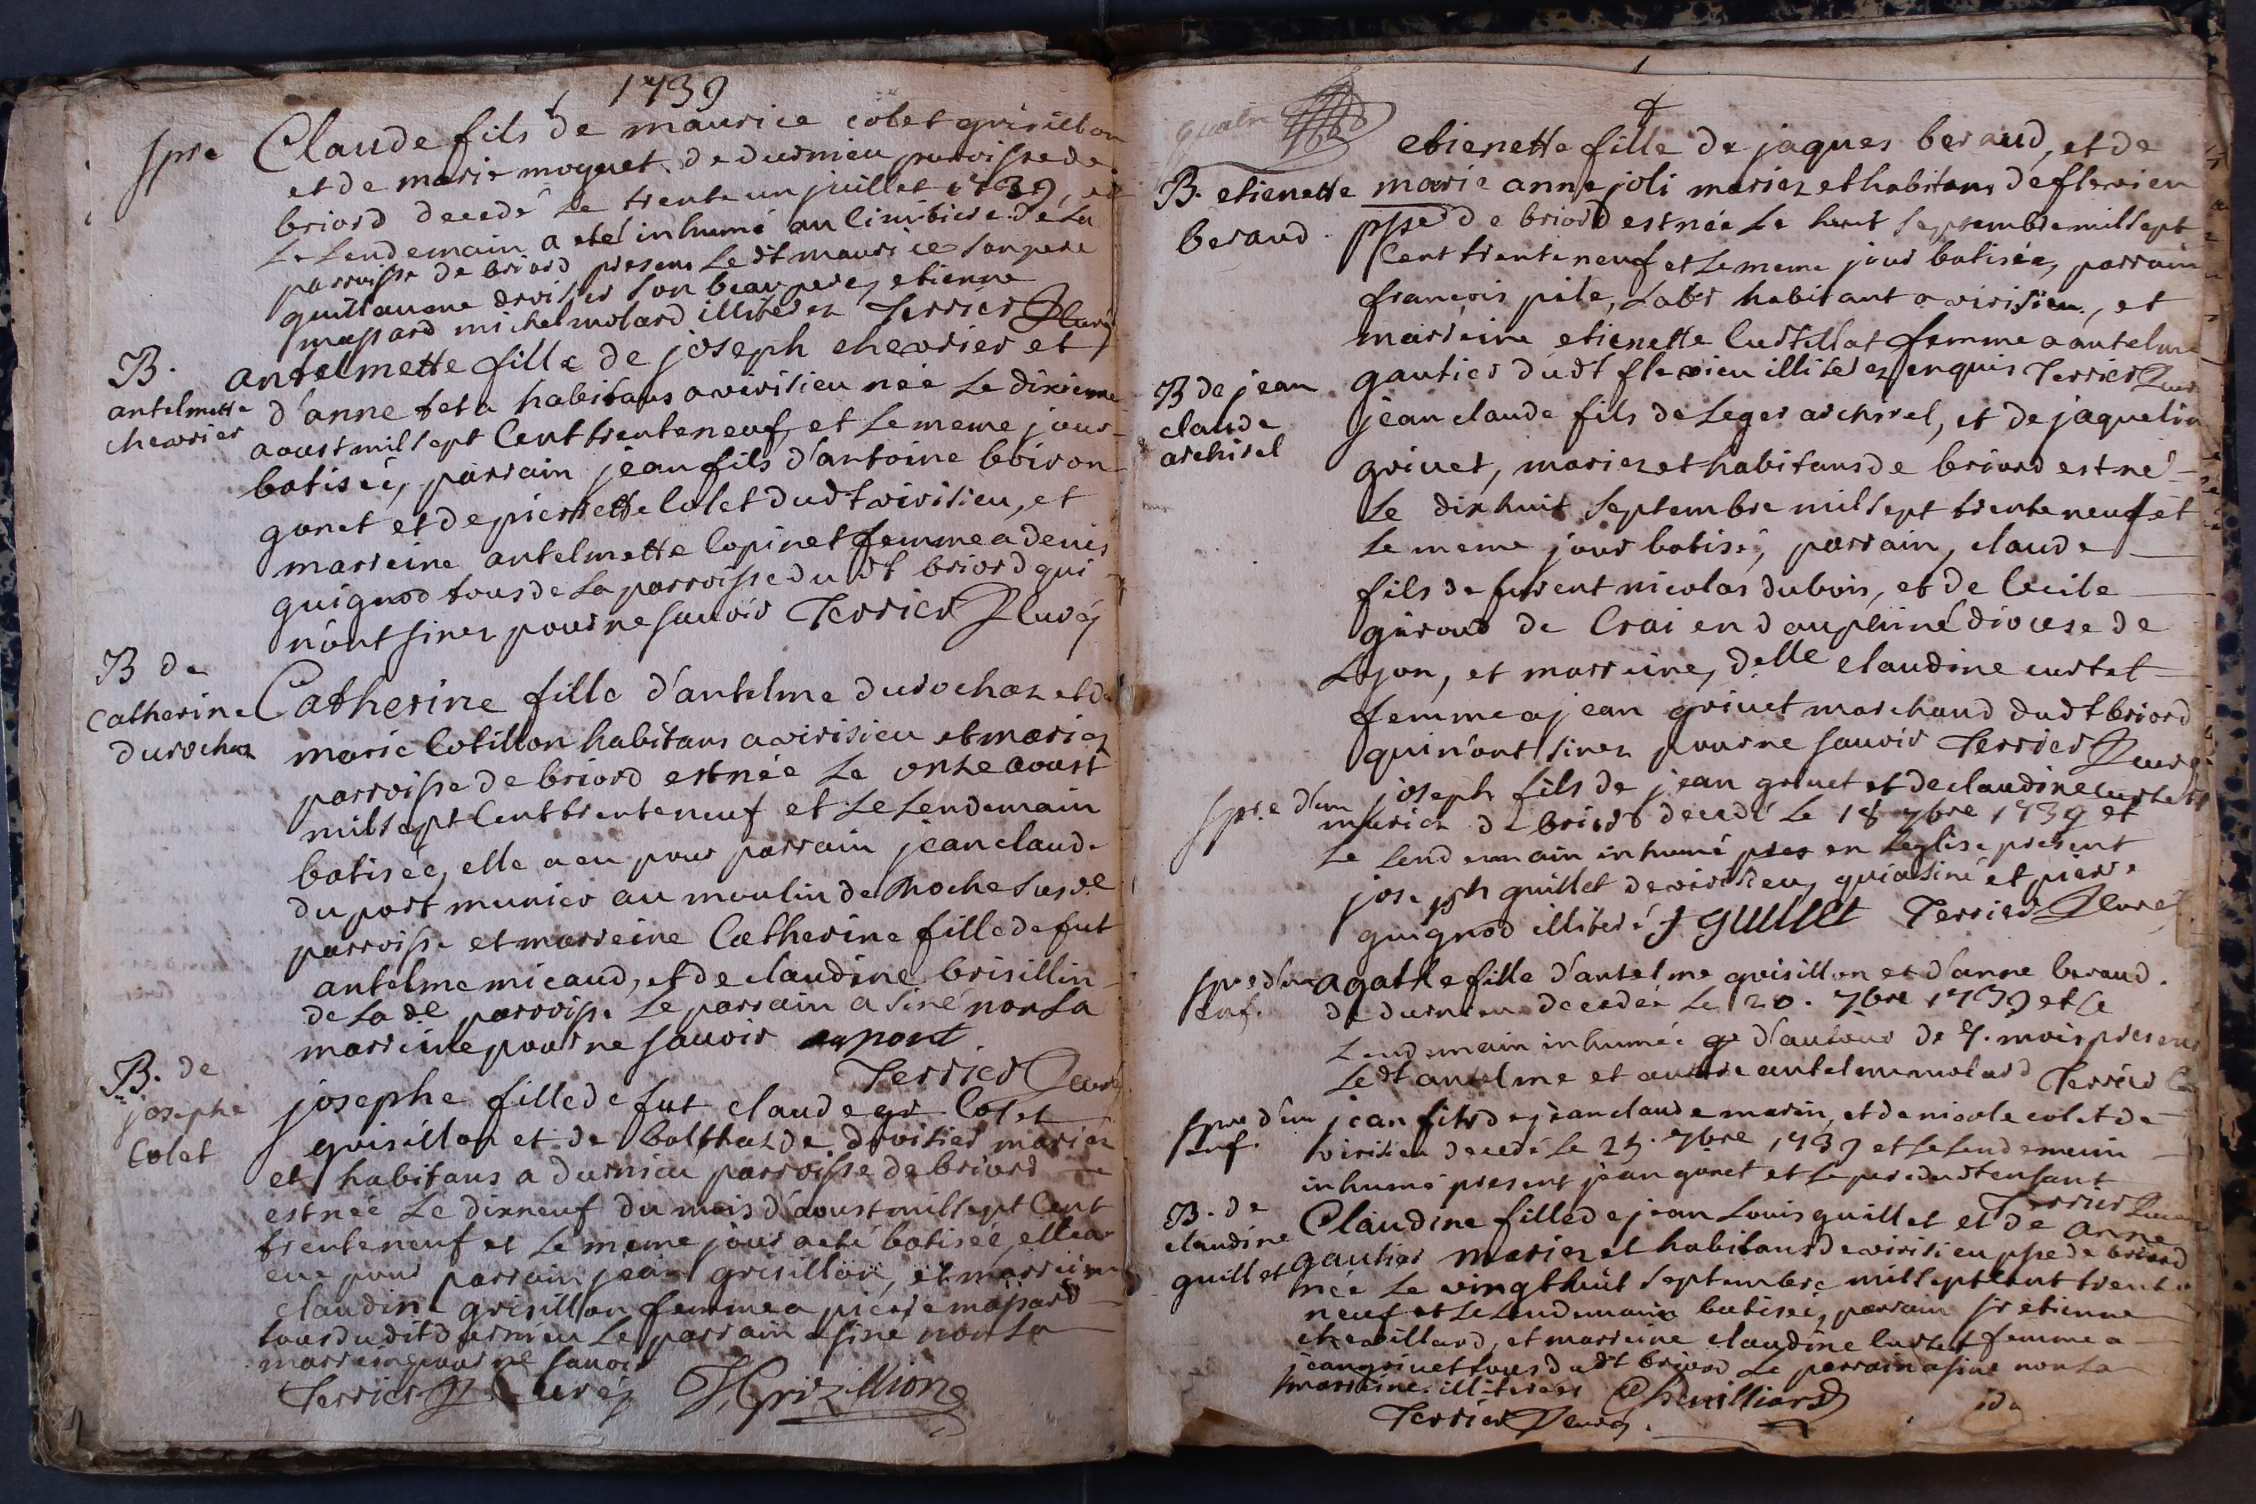 1739
spre Claude fils de maurice colet grisillon
et de marie moguet de durnieu parroisse de
briord decedé Le trente un juillet 1739, et
Le Lendemain a eté inhumé au Cimitiere de La
parroisse de briord presens Le dt maurice son pere
guillaume droisier son beau pere, etienne
massard michel molard illiterez Terrier Curé
B.
antelmette
chevrier
antelmette fille de joseph chevrier et
d'anne teta habitans a virisieu née Le dixieme
aoust mil sept Cent trente neuf, et Le meme jour
batisée, parrain jean fils d'antoine boiron
gonet et de pierrette Colet dudt virisieu, et
marreine antelmette Copinet femme a denis
guignod tous de La parroisse du dt briord qui
n'ont sinez pour ne savoir Terrier Curé
B de
Catherine
durochaz
Catherine fille d'antelme durochaz et de
marie Cotillon habitans a virisieu et mariez
parroisse de briord est née Le onze aoust
mil sept Cent trente neuf et Le Lendemain
batisée, elle a eu pour parrain jean claude
du port munier au moulin de Roche Sus de
parroisse et marreine Catherine fille de fut
antelme micaud, et de claudine brisillin
de La de parroisse Le parrain a siné non La
marreine pour ne savoir duport
Terrier Curé
B. de
josephe
Colet
josephe fille de fut claude gr Colet
grisillon et de balthazde droisier mariez
et habitans a durnieu parroisse de briord
est née Le dixneuf du mois d'aoust mil sept Cent
trente neuf et Le meme jour a eté batisée, elle a
eue pour parrain jean grisillon, et marreine
claudine grisillon femme a pierre massard
tous du dit durnieu Le parrain a siné non La
marreine pour ne savoir
Terrier Curé J Grizillion
etienette fille de jaques beraud, et de
B. etienette
beraud.
marie anne joli mariez et habitans de flevieu
ppsse de briord est née Le huit septembre mil sept
Cent trente neuf et Le meme jour batisée, parrain
françois pile, Labr habitant a virisieu, et
marreine etienette Curtillat femme a antelme
gautier dudt flevieu illiterez enquis Terrier Curé
B de jean
claude
archirel
jean claude fils de Leger archirel, et de jaqueline
grivet, mariez et habitans de briord est né
Le dixhuit septembre mil sept trente neuf et
Le meme jour batisé, parrain, claude
fils de furent nicolas dubois, et de Cecile
giroud de Crai en dauphiné diocese de
Lyon, et marreine, delle claudine curtet
femme a jean grivet marchand dudt briord
qui n'ont sinez pour ne savoir Terrier Curé
spre d'un joseph fils de jean grivet et de claudine Curtet
mariez de briord decedé Le 18 7bre 1739 et
Le Lendemain inhumé pres en Leglise present
joseph guillet de virisieu, qui a siné et pierre
guignod illiteré J guillet Terrier Curé
spre d'un
enf.
agathe fille d'antelme grisillon et d'anne beraud.
de durnieu decedée Le 20. 7bre 1739 et Le
Lendemain inhumée ge d'autour de 7. mois presens
Le dt antelme et autre antelme molard Terrier
spre d'un
enf.
jean fils de jean claude marin, et de nicole colet de
virisieu decedé Le 25. 7bre 1739 et Le Lendemain
inhumé present jean gonet et Le pere dudt enfant
Terrier Curé
B. de
claudine
guillet
Claudine fille de jean Louis guillet et de anne
gautier mariez et habitans de virisieu ppsse de briord
née Le vingt huit septembre mil sept cent trente
neuf et Le Lendemain batisée, parrain sr etienne
chevillard, et marreine claudine Curtet femme a
jean grivet tous dudt briord Le parrain a siné non La
marreine illiterée Chevilliard
Terrier Curé